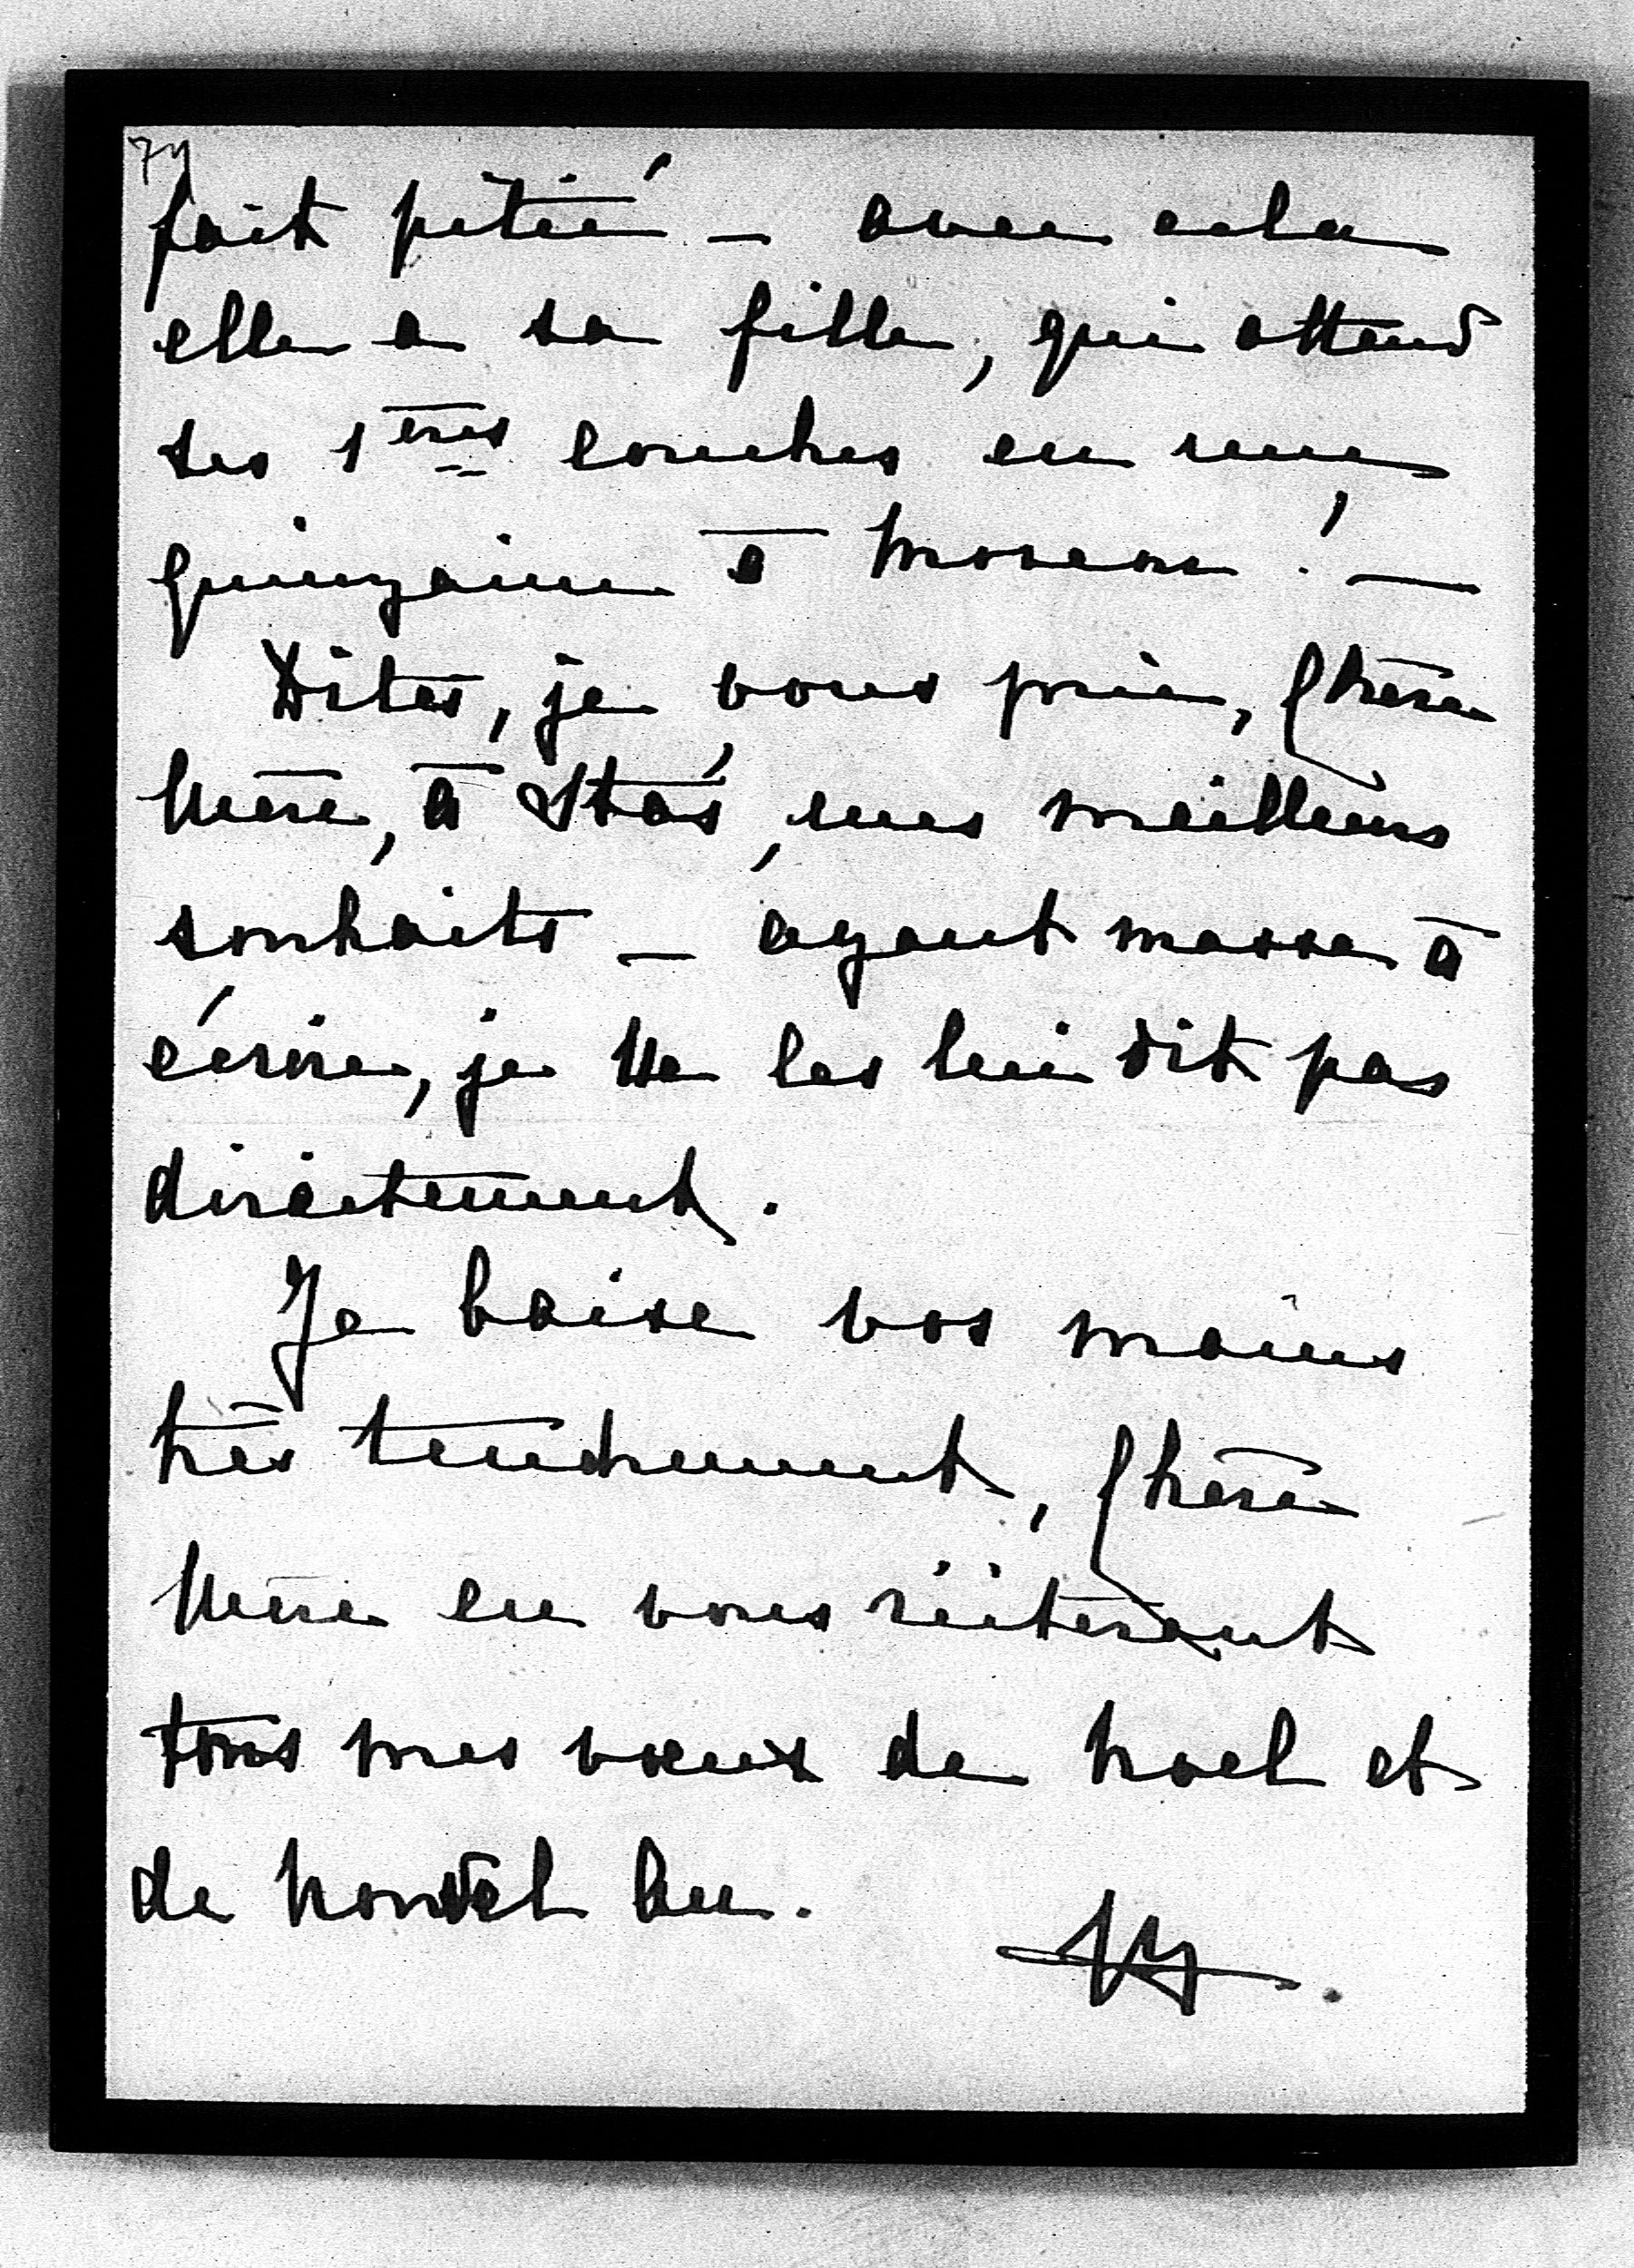 74
fait pitié – avec cela
elle a sa fille, qui attend
ses 1ères couches en une
quinzaine à Moscou ! –
Dites, je vous prie, Chère
Mère, à Stas, mes meilleurs
souhaits – ayant masse à
écrire, je ne les lui dit pas
directement.
Je baise vos mains
très tendrement, Chère
Mère en vous réitérant
tous mes vœux de Noel et
de Nouvel An.